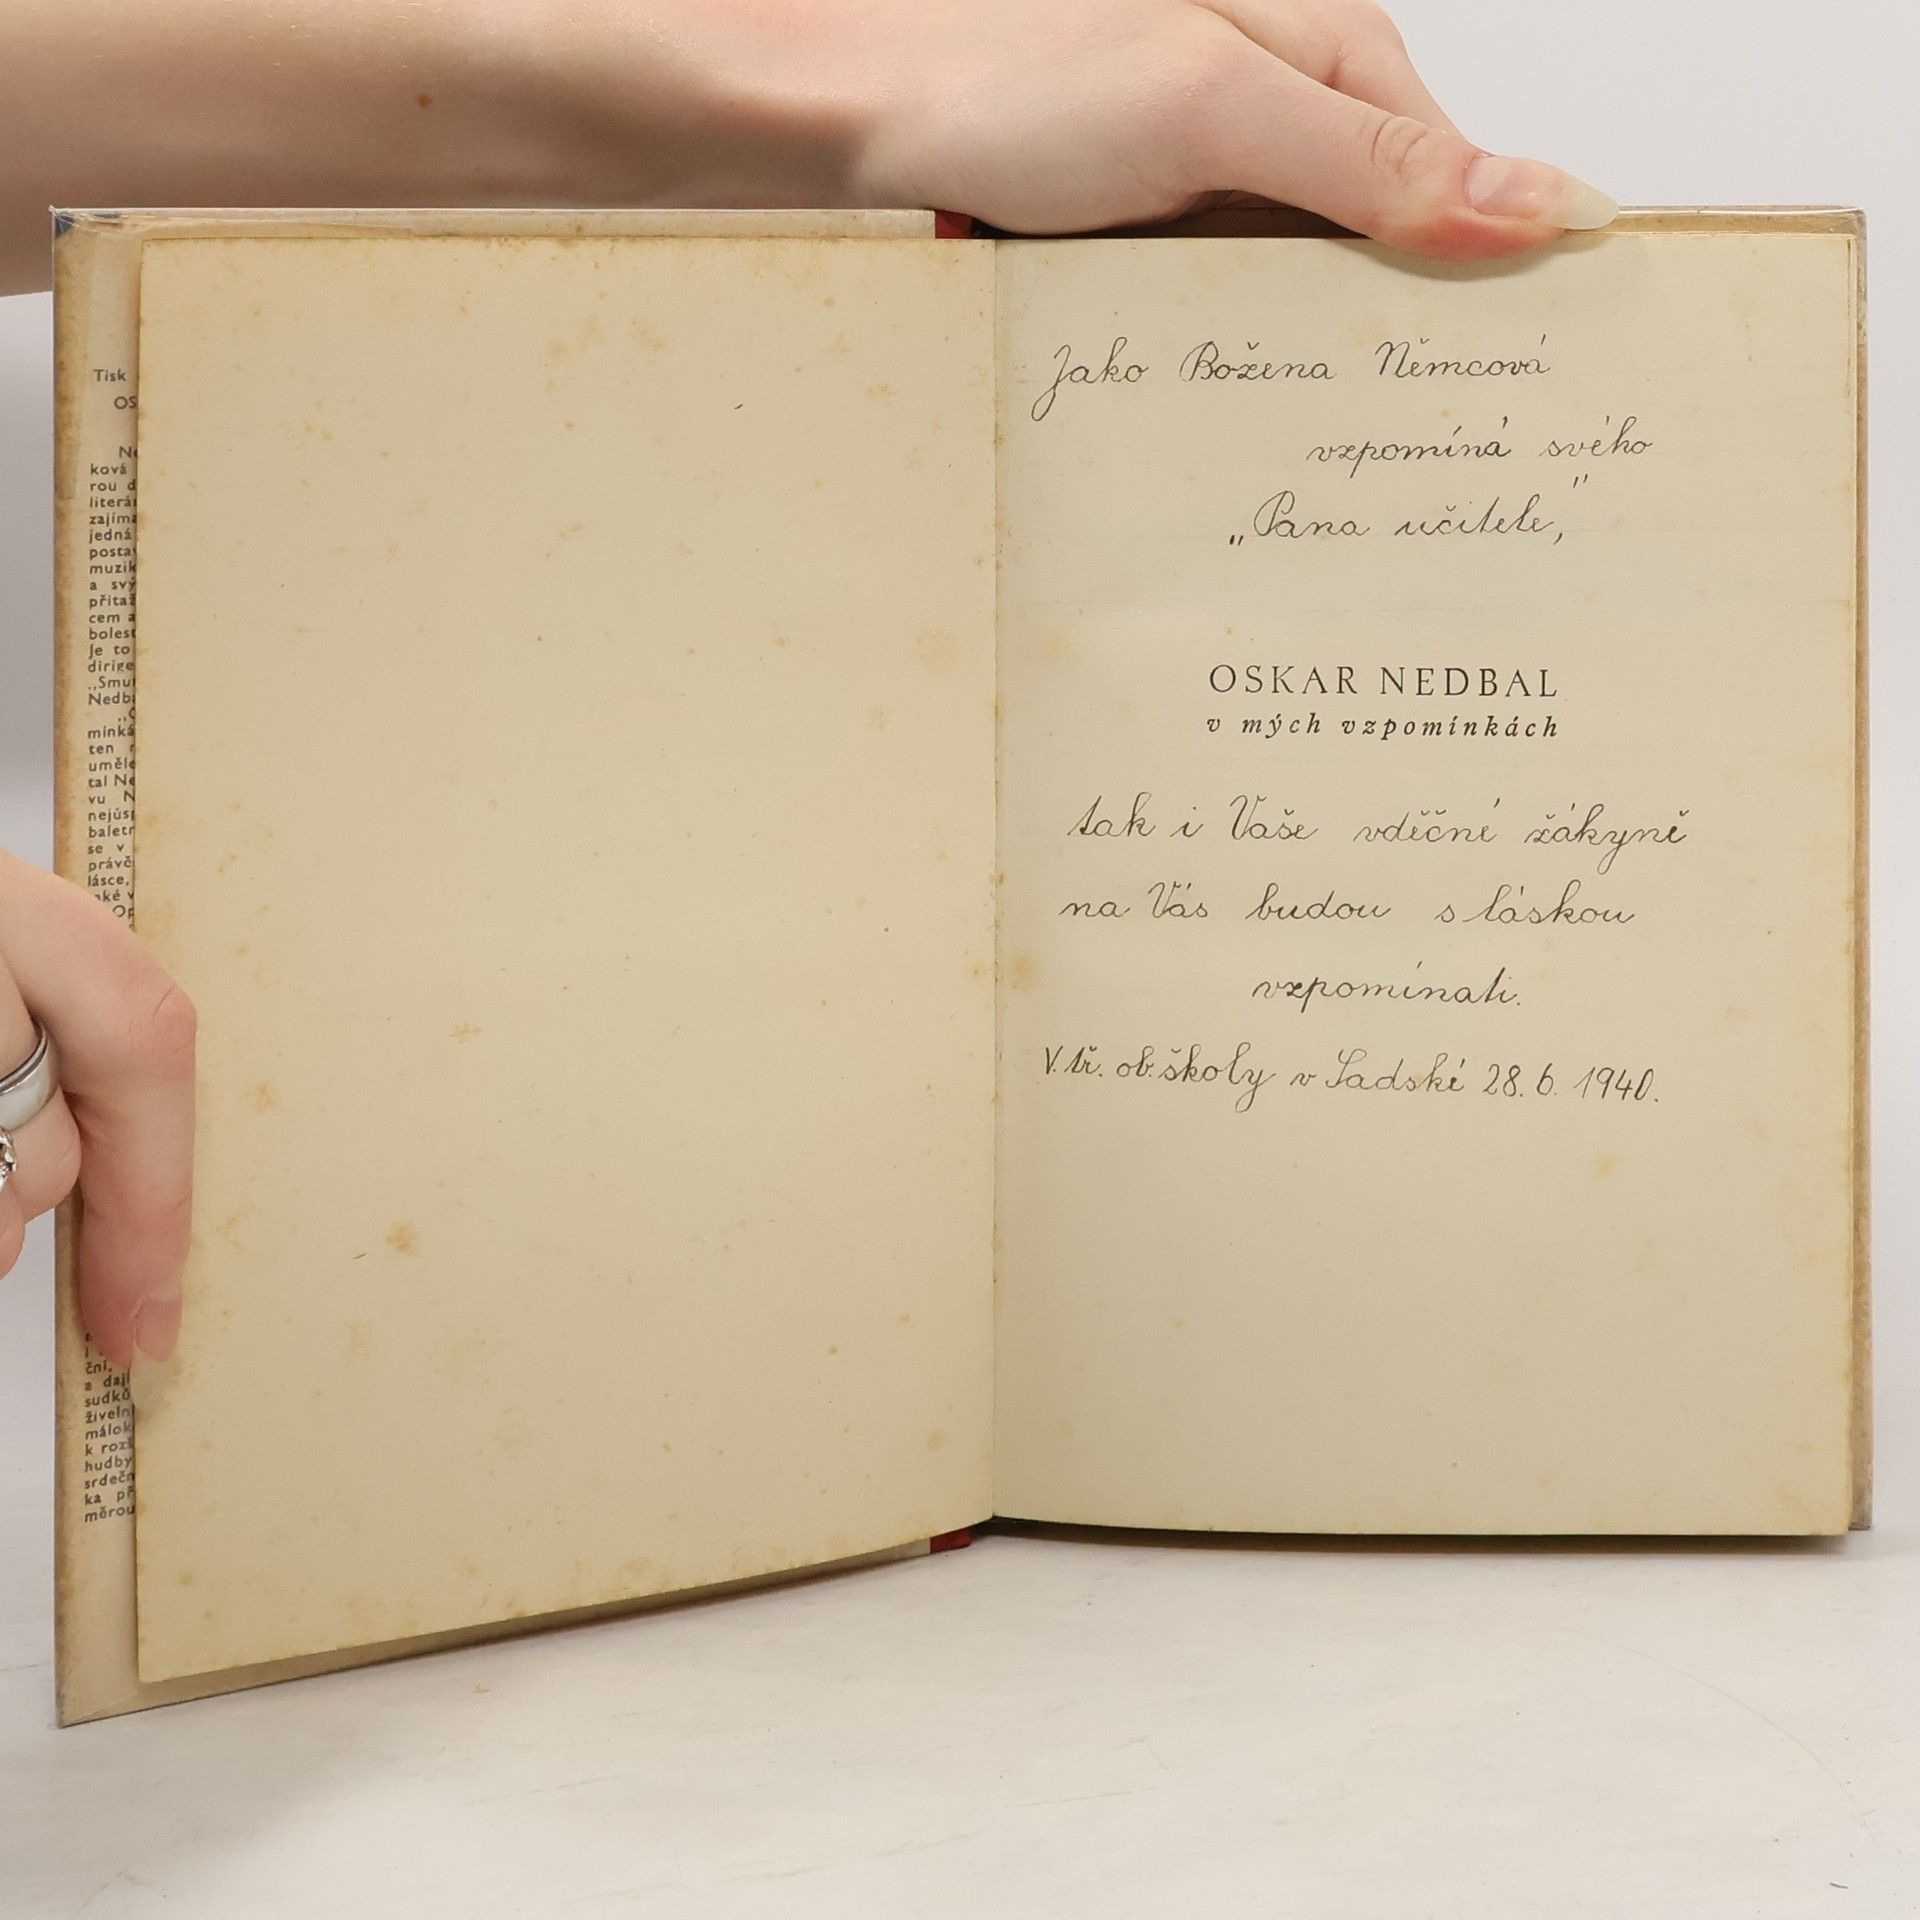 Tisk
OS
No
ková
rou d
literár
zajíma
jedná
postav
muzik
a svý
přitaž
cem a
bolest
Je to
dirige
„Smut
Nedba
„O
mínká
ten
uměle
tal Ne
vu N
nejúsp
baletn
se v
právě
lásce,
aké v
Op
ční,
a dají
sudků
živeln
málok
k rozš
hudby
srdečn
ka př
měrou
Jako Božena Němcová
vzpomíná svého
„Pana učitele,"
OSKAR NEDBAL
v mých vzpomínkách
tak i Vaše vděčné žákyně
na Vás budou s láskou
vzpomínati.
V. tř. ob. školy v Sadské 28. 6. 1940.